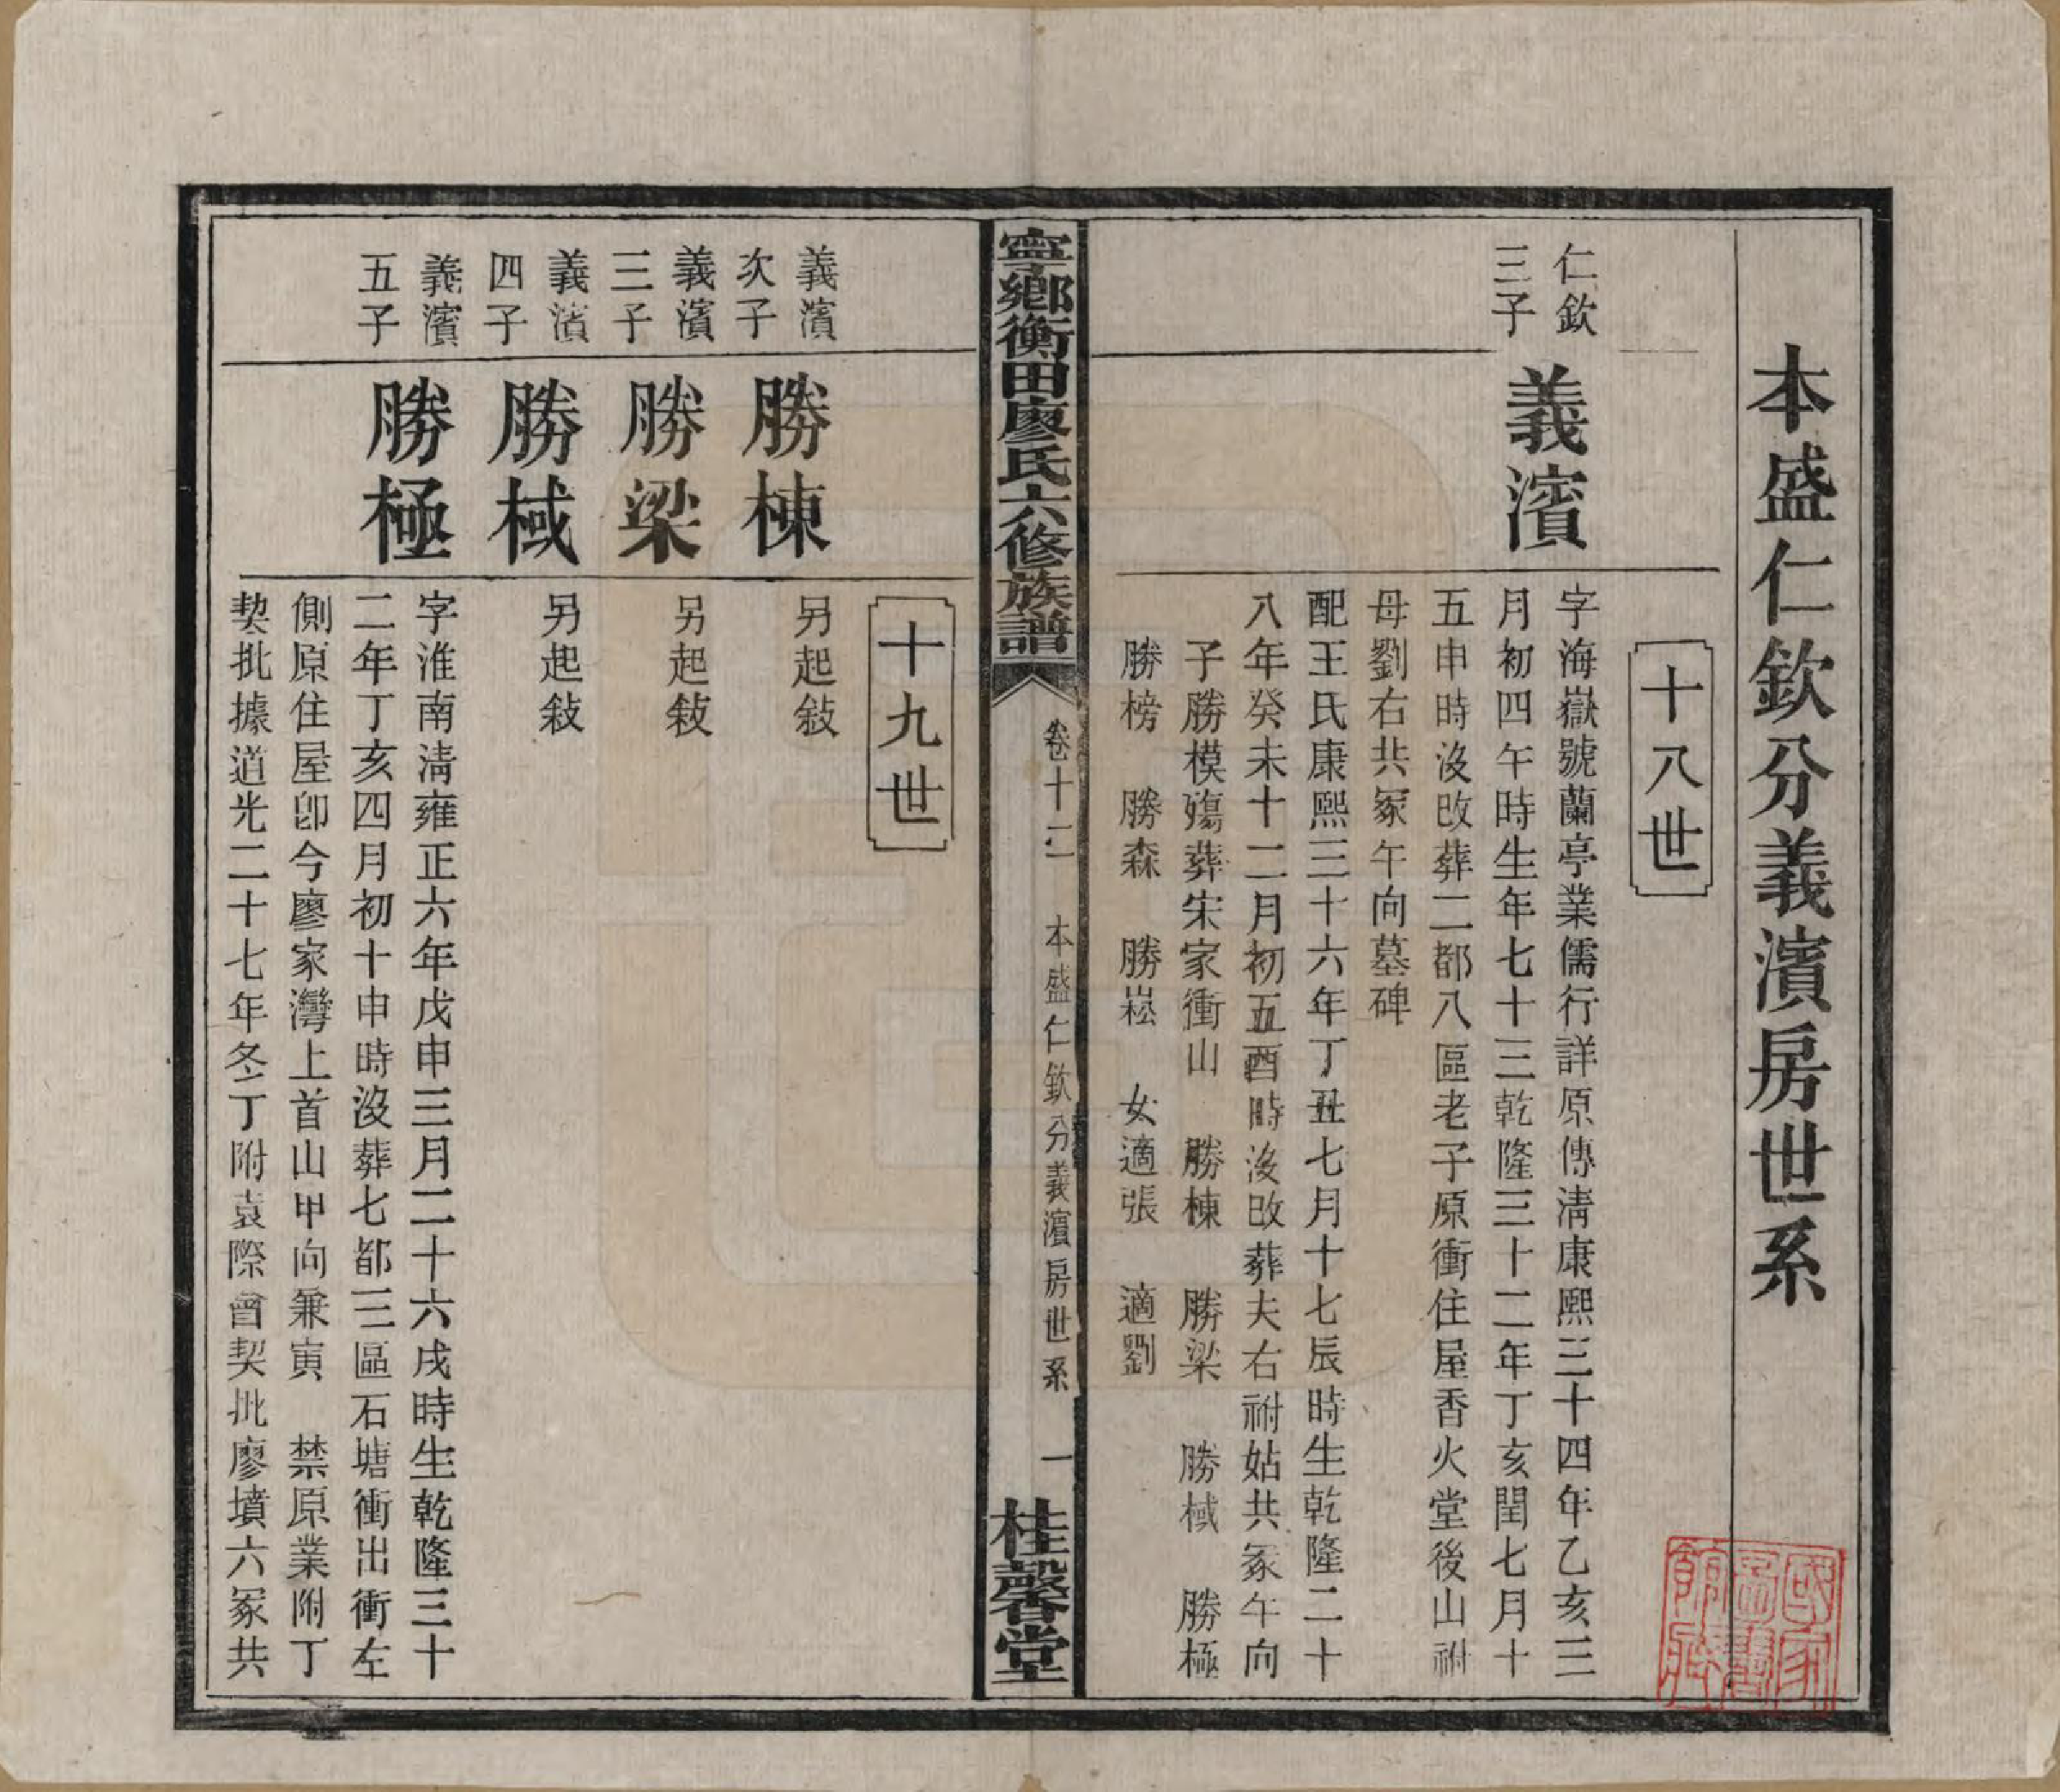 本盛仁欽分義濱房世系
十八世
仁欽
三子
義濱
字海嶽號蘭亭業儒行詳原傳淸康熙三十四年乙亥三
月初四午時生年七十三乾隆三十二年丁亥閏七月十
五申時沒改葬二都八區老子原衝住屋香火堂後山祔
母劉右共冢午向墓碑
配王氏康熙三十六年丁丑七月十七辰時生乾隆二十
八年癸未十二月初五酉時沒改葬夫右祔姑共冢午向
子勝模殤葬宋家衝山 勝棟 勝梁 勝棫 勝極
勝榜 勝森 勝崧 女適張 適劉
寧鄉衡田廖氏六修族譜
卷十二 本盛仁欽分義濱房世系 一
桂馨堂
十九世
義濱
次子
勝棟
另起敍
義濱
三子
勝梁
另起敍
義濱
四子
勝棫
另起敍
義濱
五子
勝極
字淮南淸雍正六年戊申三月二十六戌時生乾隆三十
二年丁亥四月初十申時沒葬七都三區石塘衝出衝左
側原住屋卽今廖家灣上首山甲向兼寅 禁原業附丁
契批據道光二十七年冬丁附袁際曾契批廖墳六冢共
國家圖書館藏